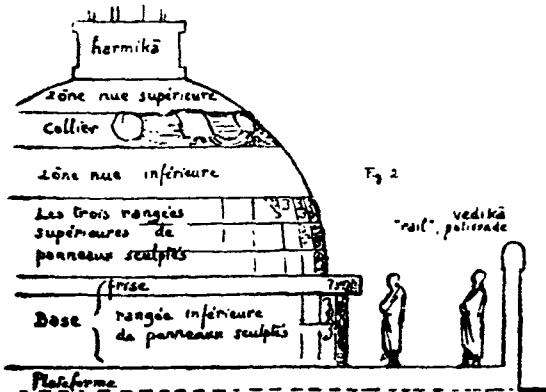 harmikā
zône nue supérieure
Collier
zône nue inférieure
Fig 2
Les trois rangées
supérieures de
panneaux sculptés
vedikā
"rail", palissade
frise
Base
rangée inférieure
de panneaux sculptés
Plateforme